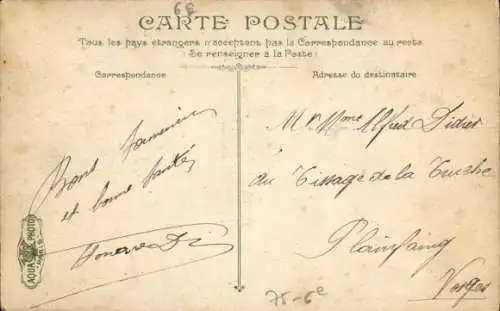 68
CARTE POSTALE
Tous les pays étrangers n'acceptent pas la Correspondance au recto
(Se renseigner à la Poste)
Correspondance
Adresse du destinataire
Bons
et bonne santé
Mr Mme Alfred Didier
au Tissage de la Truche
Plainfaing
Vosges
AQUA PHOTO
75-6e